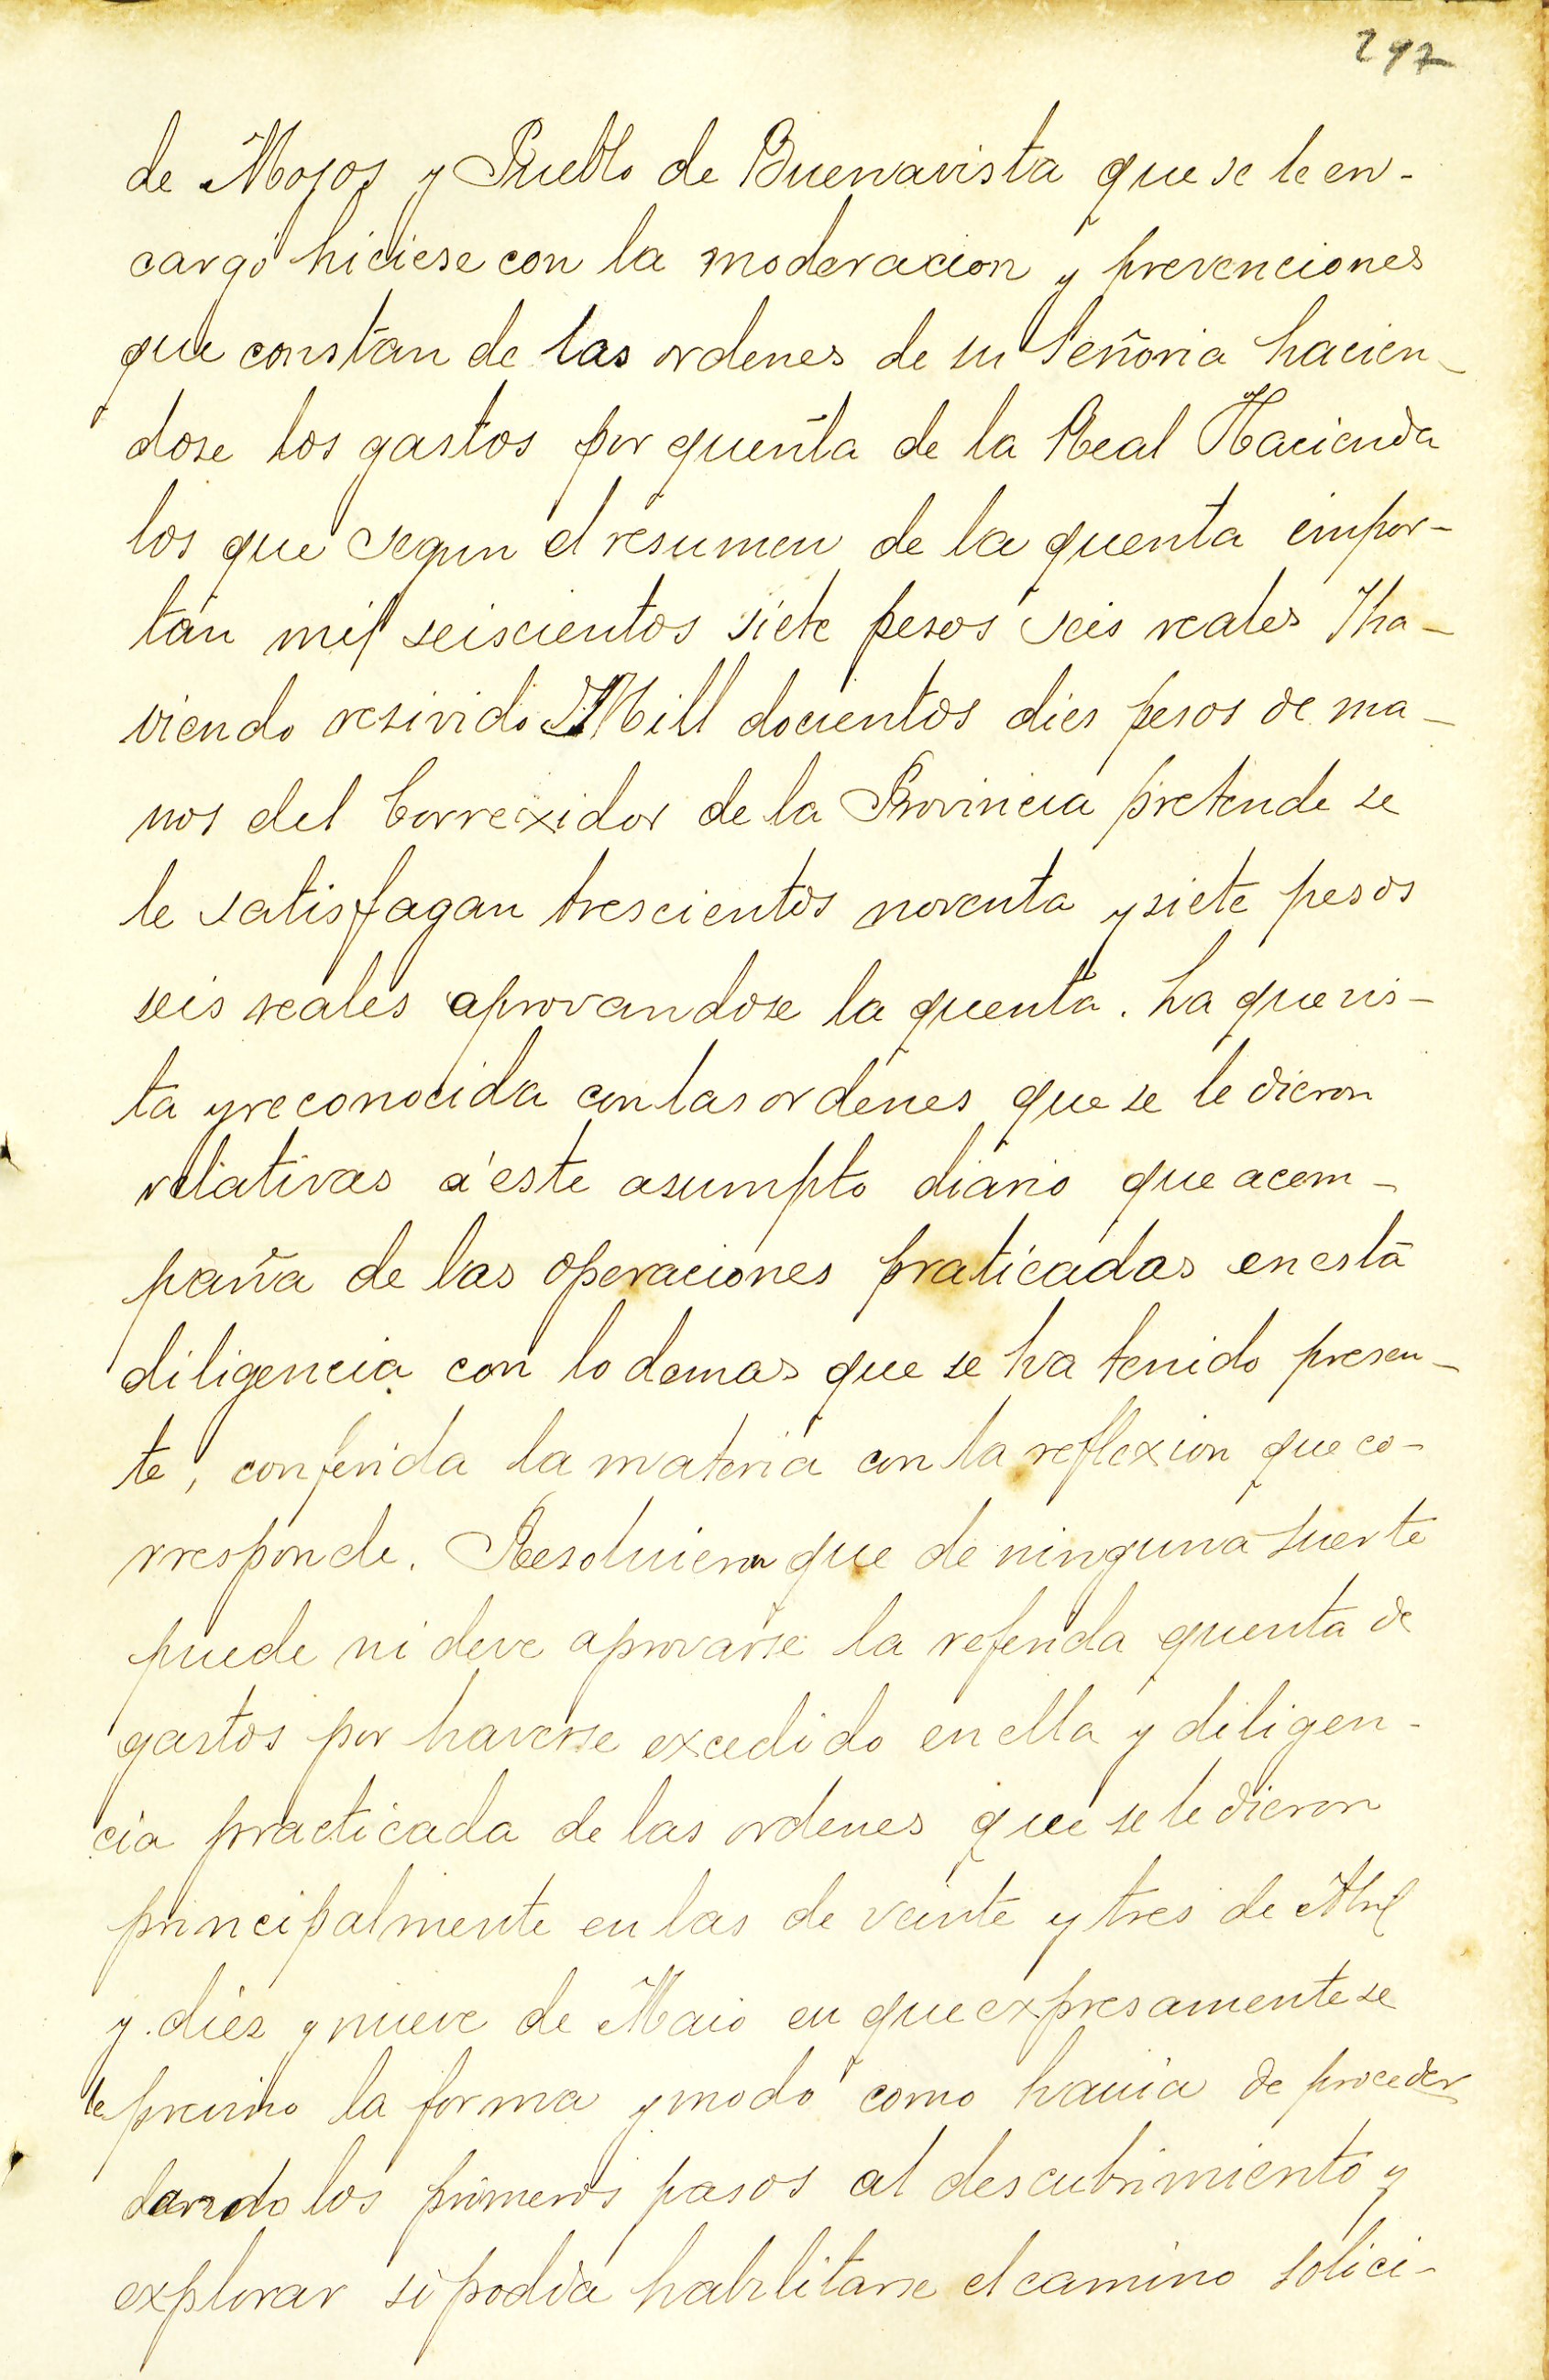 297
de Mojos y Pueblo de Buenavista que se le en-
cargó hiciese con la moderacion y prevenciones
que constan de las ordenes de su Señoria hacien-
dose los gastos por quenta de la Real Hacienda
los que segun el resumen de la quenta impor-
tan mil seiscientos siete pesos seis reales Yha-
viendo resivido Mill docientos dies pesos de ma-
nos del Correxidor de la Provincia pretende se
le satisfagan trescientos noventa y siete pesos
seis reales aprovandose la quenta. La que vis-
ta y reconocida con las ordenes que se le dieron
relativas a este asumpto diario que acom-
paña de las operaciones praticadas en esta
diligencia con lo demas que se ha tenido presen-
te, conferida la materia con la reflexion que co-
rresponde. Resolvieron que de ninguna suerte
puede ni deve aprovarse la referida quenta de
gastos por haverse excedido en ella y diligen-
cia practicada de las ordenes que se le dieron
principalmente en las de veinte y tres de Abril
y diez y nueve de Maio en que expresamente se
le previno la forma y modo como havia de proceder
dando los primeros pasos al descubrimiento y
explorar si podia habilitarse el camino solici-